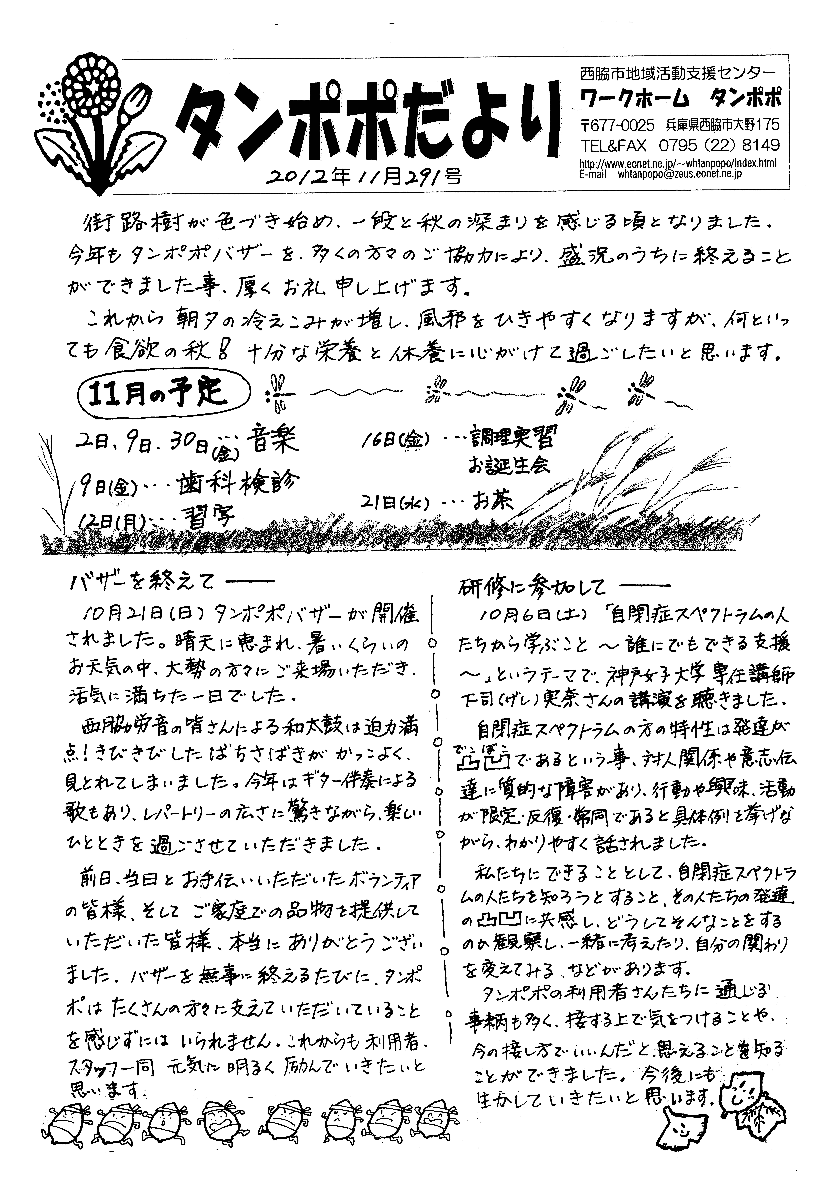 タンポポだより
2012年11月291号
西脇市地域活動支援センター
ワークホーム タンポポ
〒677-0025 兵庫県西脇市大野175
TEL&FAX 0795 (22) 8149
http://www.eonet.ne.jp/~whtanpopo/index.html
E-mail whtanpopo@zeus.eonet.ne.jp
街路樹が色づき始め、一段と秋の深まりを感じる頃となりました。
今年もタンポポバザーを、多くの方々のご協力により、盛況のうちに終えること
ができました事、厚くお礼申し上げます。
これから朝夕の冷えこみが増し、風邪をひきやすくなりますが、何といっ
ても食欲の秋!十分な栄養と休養に心がけて過ごしたいと思います。
11月の予定
2日、9日、30日(金)…音楽
9日(金)…歯科検診
12日(月)…習字
16日(金)…調理実習
お誕生会
21日(水)…お茶
バザーを終えて ――
10月21日(日)タンポポバザーが開催
されました。晴天に恵まれ、暑いくらいの
お天気の中、大勢の方々にご来場いただき、
活気に満ちた一日でした。
西脇労音の皆さんによる和太鼓は迫力満
点!きびきびしたばちさばきがかっこよく、
見とれてしまいました。今年はギター伴奏による
歌もあり、レパートリーの広さに驚きながら、楽しい
ひとときを過ごさせていただきました。
前日、当日とお手伝いいただいたボランティア
の皆様、そしてご家庭での品物を提供して
いただいた皆様、本当にありがとうござい
ました。バザーを無事に終えるたびに、タンポ
ポはたくさんの方々に支えていただいていること
を感じずにはいられません。これからも利用者、
スタッフ一同 元気に明るく励んでいきたいと
思います。
研修に参加して ――
10月6日(土)「自閉症スペクトラムの人
たちから学ぶこと ～誰にでもできる支援
～」というテーマで、神戸女子大学専任講師
下司(げし)実奈さんの講演を聴きました。
自閉症スペクトラムの方の特性は発達が
でこぼこ
凸凹であるという事、対人関係や意志伝
達に質的な障害があり、行動や興味、活動
が限定・反復・常同であると具体例を挙げな
がら、わかりやすく話されました。
私たちにできることとして、自閉症スペクトラ
ムの人たちを知ろうとすること、その人たちの発達
の凸凹に共感し、どうしてそんなことをする
のか観察し、一緒に考えたり、自分の関わり
を変えてみる、などがあります。
タンポポの利用者さんたちに通じる
事柄も多く、接する上で気をつけることや、
今の接し方でいいんだと、思えることを知る
ことができました。今後にも
生かしていきたいと思います。